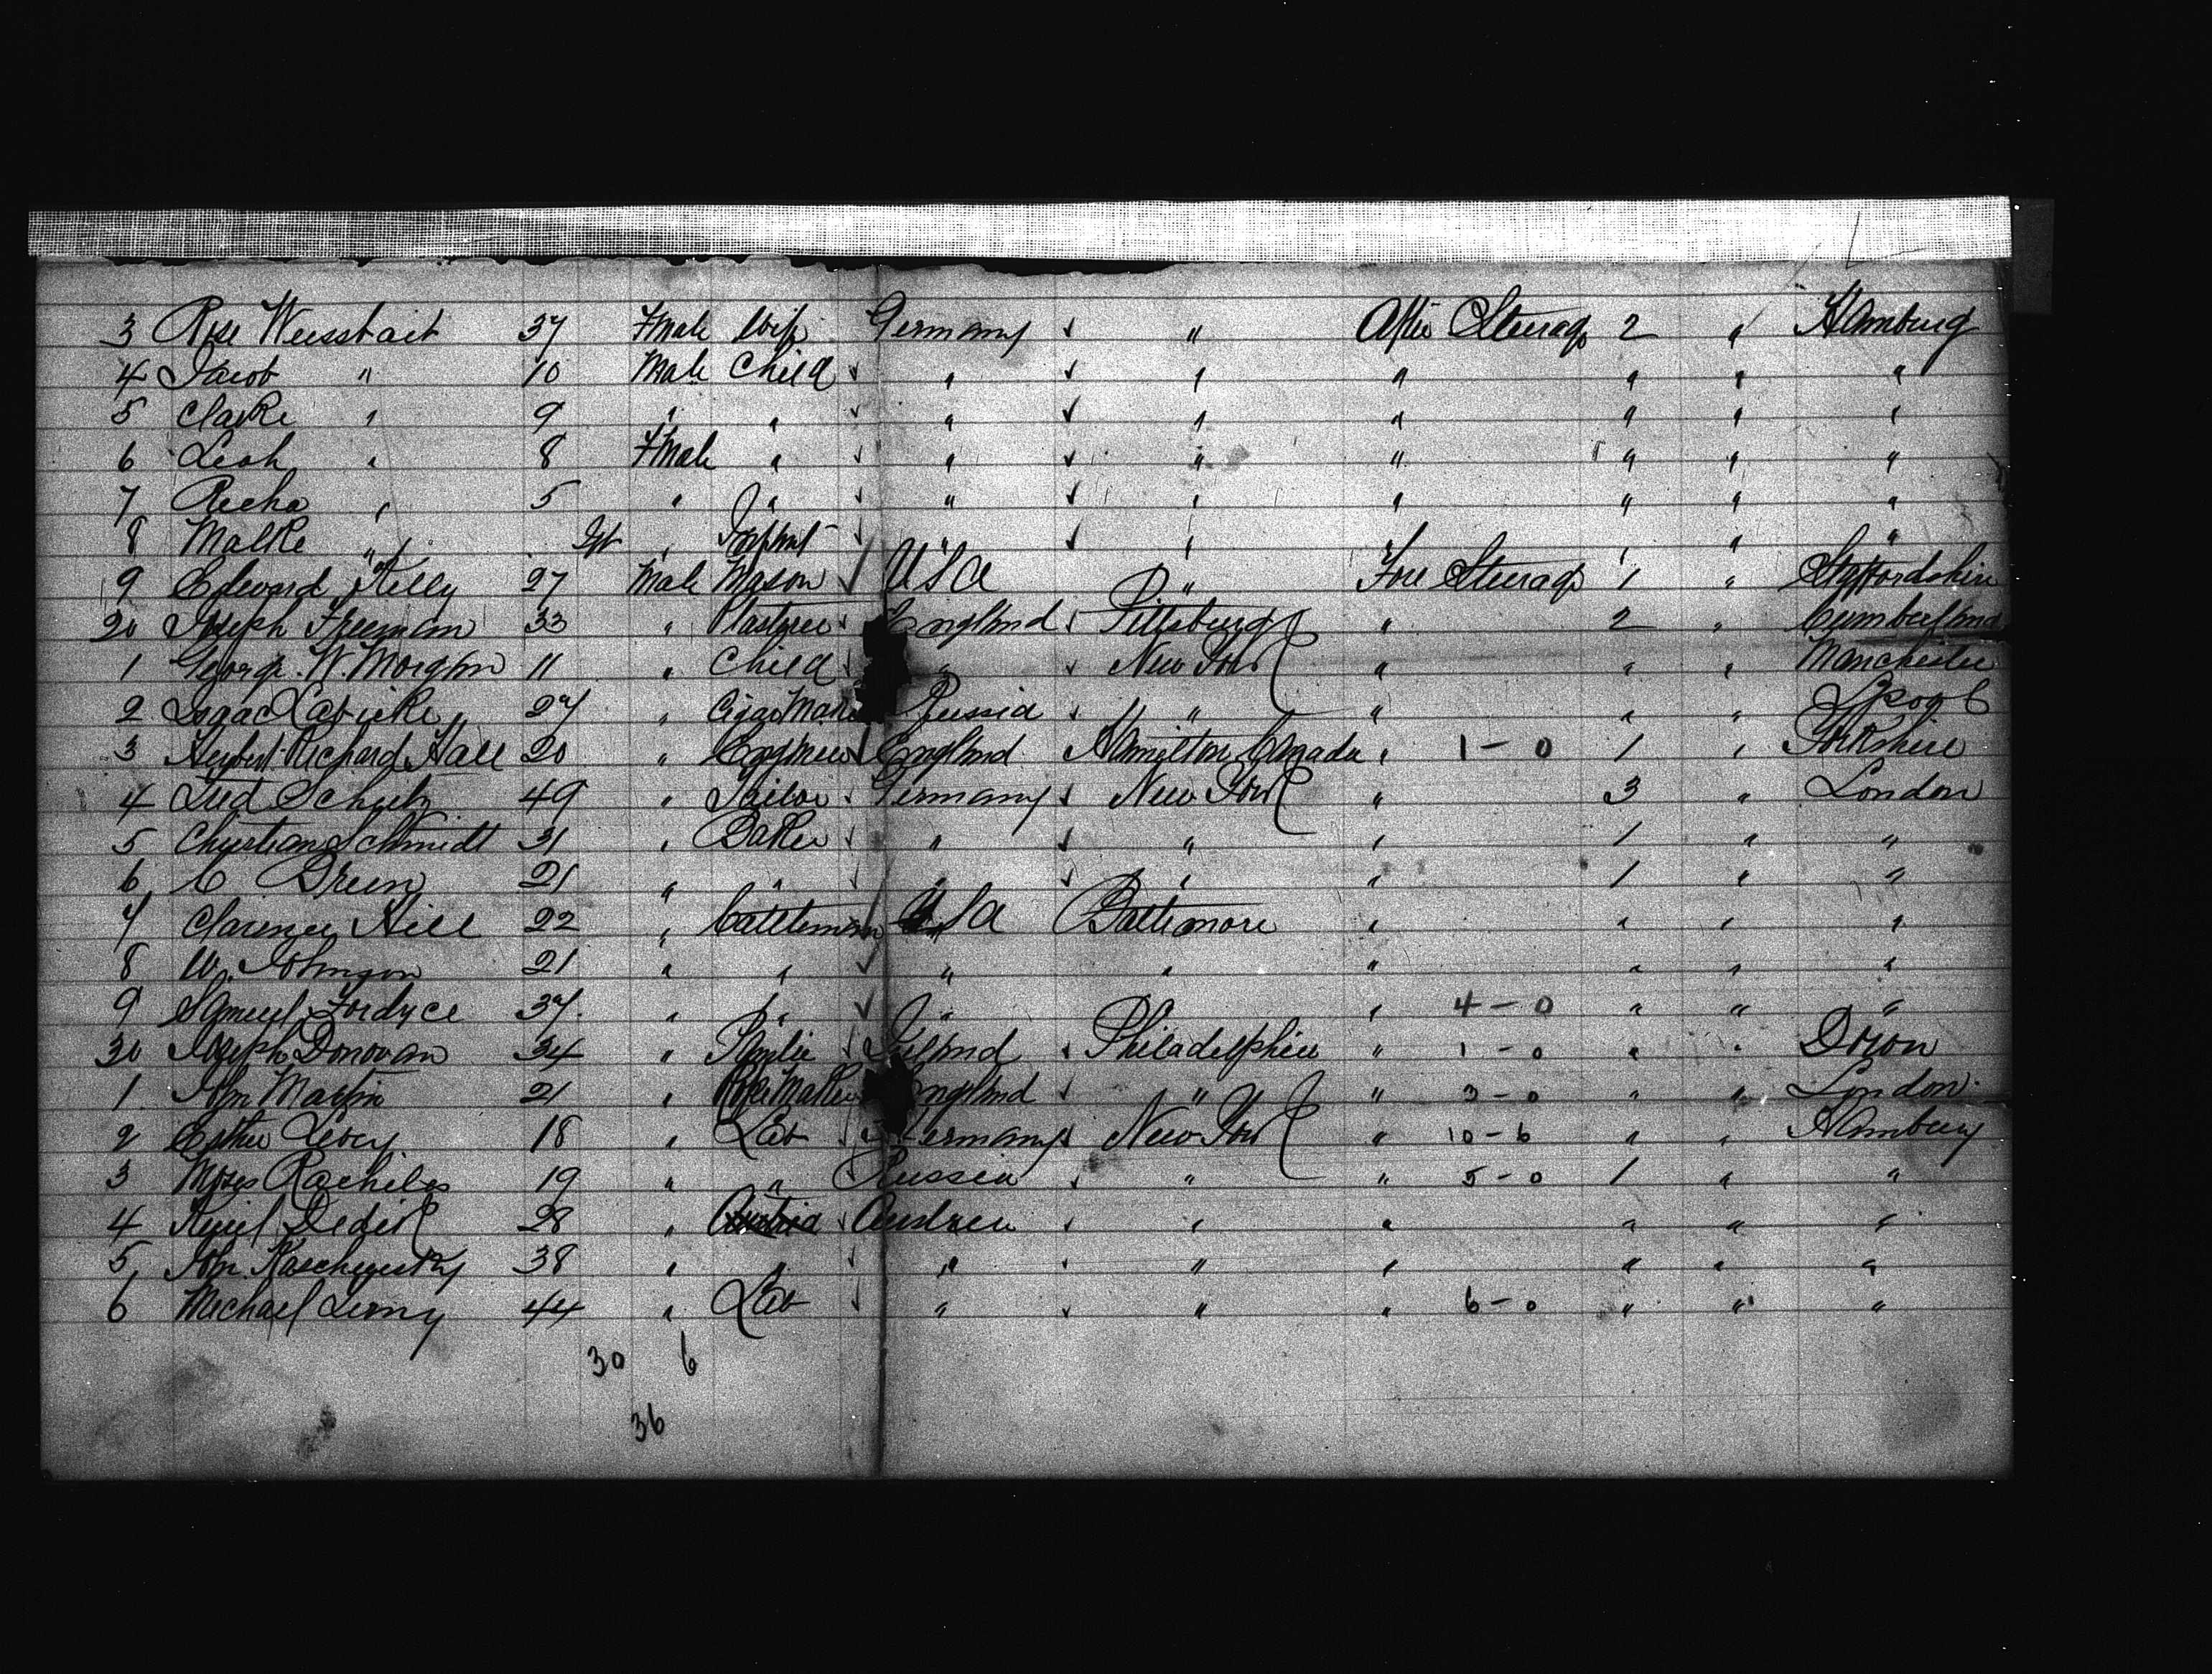 3 Rose Weissbait 37 Fmale Wife Germany " After Steerage 2 " Hamburg
4 Jacob " 10 Male Child " " " " " "
5 Clarke " 9 " " " " " " " "
6 Leah " 8 Fmale " " " " " " "
7 Recha " 5 " " " " " " " "
8 Malke " Inft " Infant " " " " " "
9 Edward Kelly 27 Male Mason USA " Fore Steerage 1 " Staffordshire
20 Joseph Freeman 33 " Plasterer England Pittsburg " 2 " Cumberland
1 George W. Morgan 11 " Child " New York " " " Manchester
2 Isaac 27 " Cigar Maker Russia " " " " Lpool
3 Herbert Richard Hall 20 " Engineer England Hamilton Canada " 1-0 1 " Yorkshire
4 Fred Schultz 49 " Tailor Germany New York " 3 " London
5 Christian Schmidt 31 " Baker " " " 1 " "
6 C 21 " " " " " 1 " "
7 Clarence Hill 22 " Cattleman USA Baltimore " " " "
8 W. Johnson 21 " " " " " " " "
9 Samuel Fordyce 37 " " " " 4-0 " " "
30 Joseph Donovan 34 " Ireland Philadelphia " 1-0 " " Devon
1 John Martin 21 " England " " 3-0 " " London
2 Esther Levy 18 " Lab Germany New York " 10-6 " " Hamburg
3 Moses Rachiles 19 " " Russia " " 5-0 1 " "
4 28 " Austria Austria " " " " "
5 John 38 " " " " " " " "
6 Michael 44 " Lab " " " 6-0 " " "
30 6
36